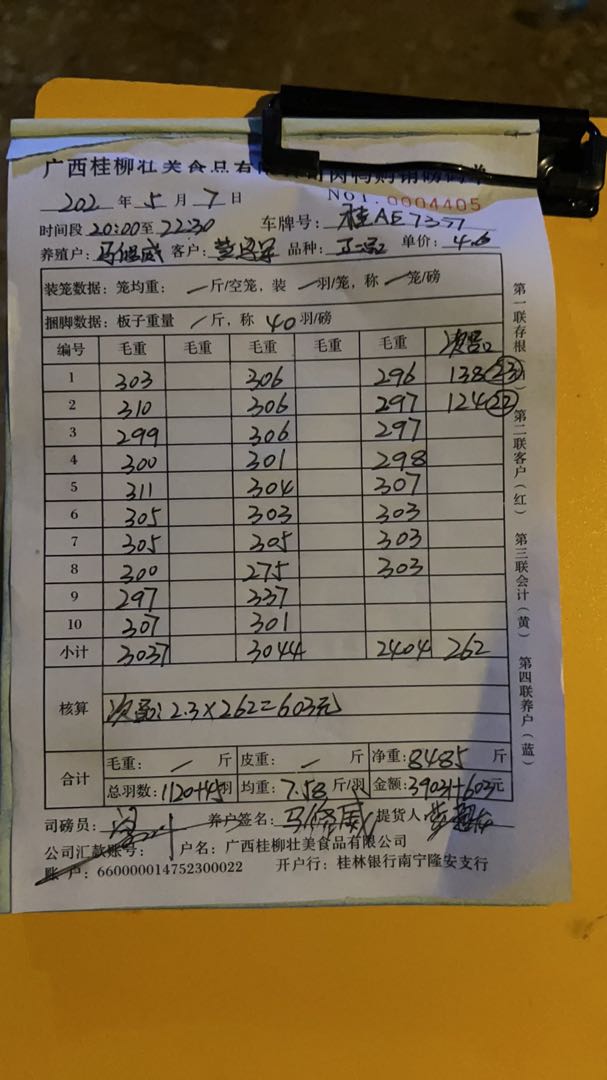 广西桂柳壮美食品有
202 年 5 月 7 日 No1.0004405
时间段 20:00至 22:30 车牌号: 桂AE7357
养殖户: 客户: 品种: 单价: 4.6
装笼数据: 笼均重: — 斤/空笼, 装 — 羽/笼, 称 — 笼/磅
捆脚数据: 板子重量 / 斤, 称 40 羽/磅
编号 毛重 毛重 毛重 毛重 毛重 次品
1 303 306 296 138 23
2 310 306 297 124 22
3 299 306 297
4 300 301 298
5 311 304 307
6 305 303 303
7 305 305 303
8 300 275 303
9 297 337
10 307 301
小计 3037 3044 2404 262
核算 次品: 2.3×262=603元
合计 毛重: / 斤 皮重: — 斤 净重: 8485 斤
总羽数: 1120+45羽 均重: 7.58 斤/羽 金额: 39031+603元
司磅员: 养户签名: 提货人:
公司汇款账号: 户名: 广西桂柳壮美食品有限公司
账 户: 660000014752300022 开户行: 桂林银行南宁隆安支行
第一联存根 第二联客户(红) 第三联会计(黄) 第四联养户(蓝)